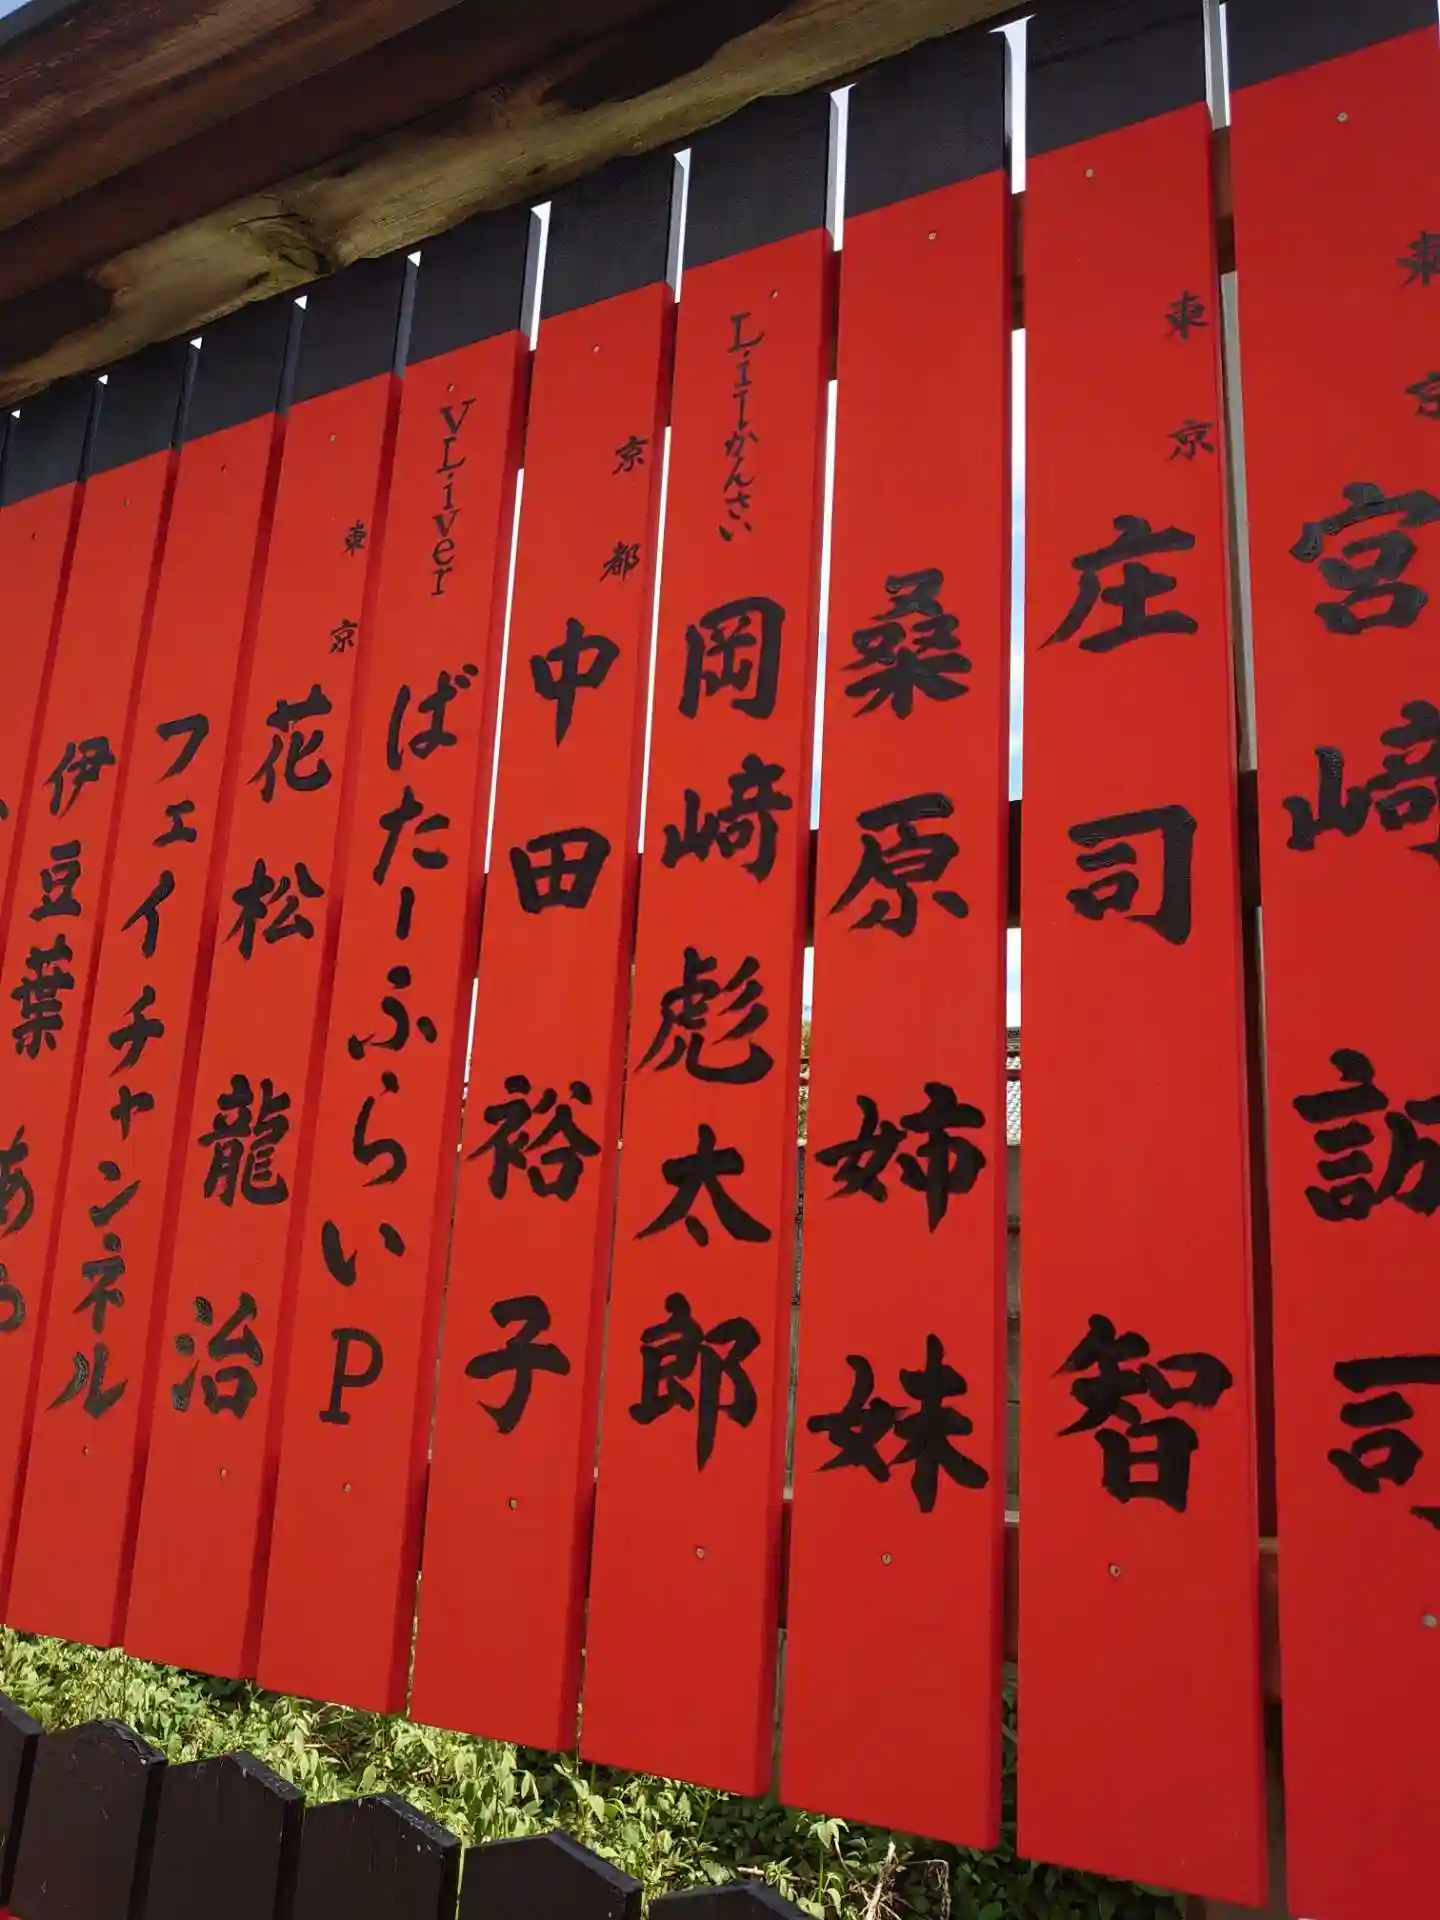 東京 宮崎誠司
東京 庄司智
桑原姉妹
Liーかんさい 岡﨑彪太郎
京都 中田裕子
VLiver ばたーふらいP
東京 花松龍治
フェイチャンネル
伊豆葉 あ